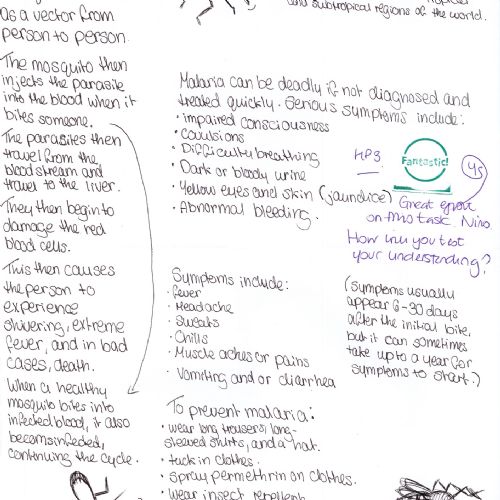 as a vector from
person to person.
The mosquito then
injects the parasite
into the blood when it
bites someone.
The parasites then
travel from the
bloodstream and
travel to the liver.
They then begin to
damage the red
blood cells.
This then causes
the person to
experience
shivering, extreme
fever, and in bad
cases, death.
When a healthy
mosquito bites into
infected blood, it also
becomes infected,
continuing the cycle.
and subtropical regions of the world.
Malaria can be deadly if not diagnosed and
treated quickly. Serious symptoms include:
• impaired consciousness
• Convulsions
• Difficulty breathing
• Dark or bloody urine
• Yellow eyes and skin (jaundice)
• Abnormal bleeding.
HP3
Fantastic!
Great effort
on this task Nina
How will you test
your understanding?
Symptoms include:
• fever
• Headache
• Sweats
• Chills
• Muscle aches or pains
• Vomiting and or diarrhea
(symptoms usually
appear 6-30 days
after the initial bite,
but it can sometimes
take up to a year for
symptoms to start.)
To prevent malaria:
• wear long trousers, long-
sleeved shirts, and a hat.
• tuck in clothes.
• spray permethrin on clothes.
• wear insect repellent